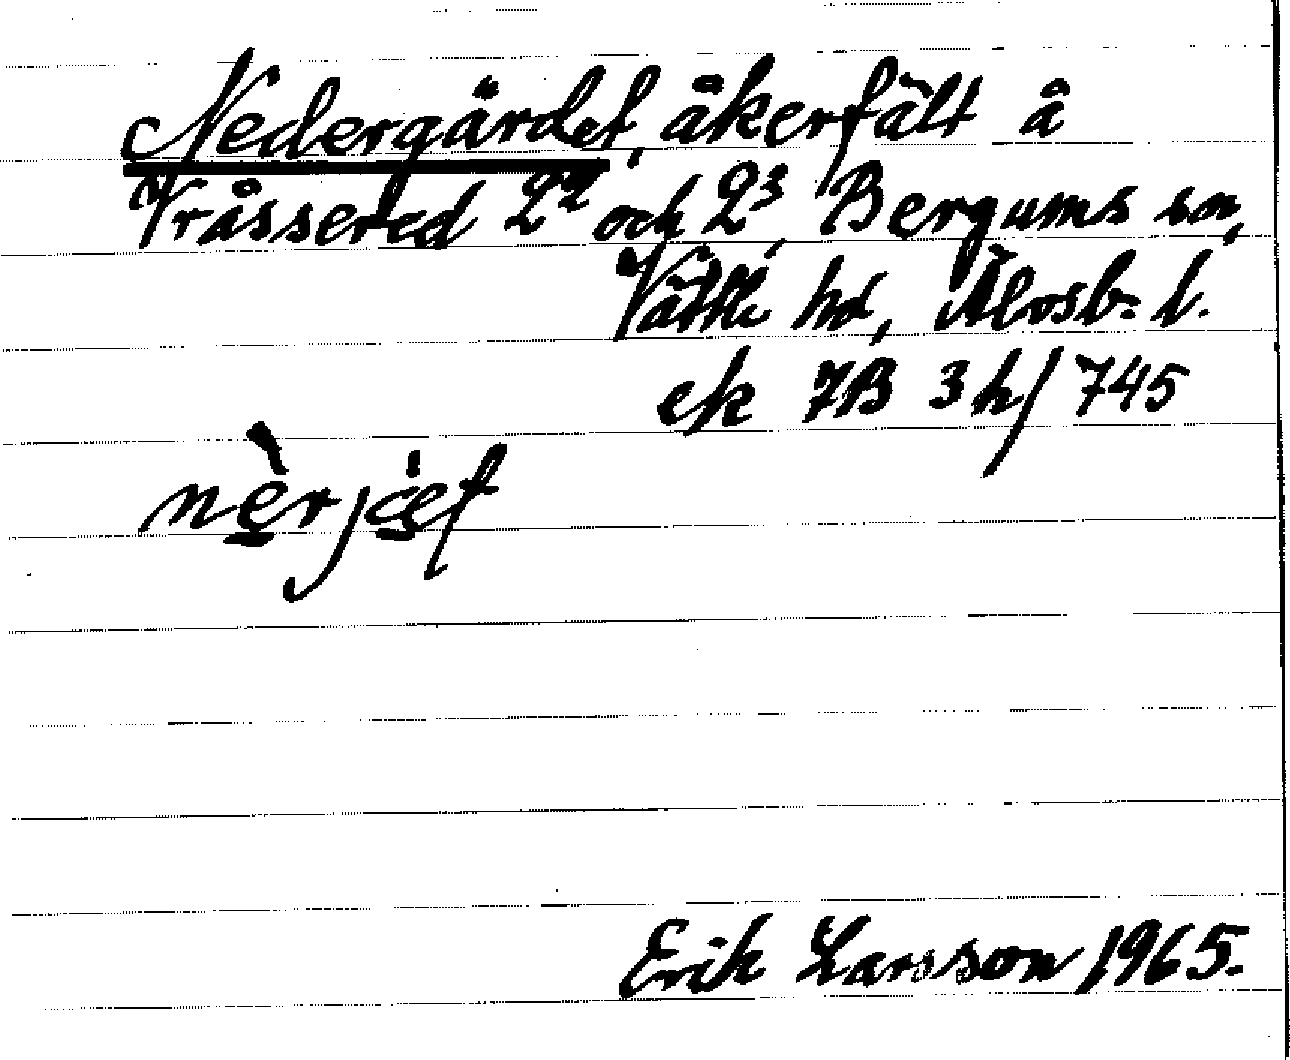 Nedergärdet, åkerfält å
Vråssered 2² och 2³, Bergums sn,
Vättle hd, Älvsb. l.
ek 7B 3h/745
nèrjæ̀ef
Erik Larsson 1965.